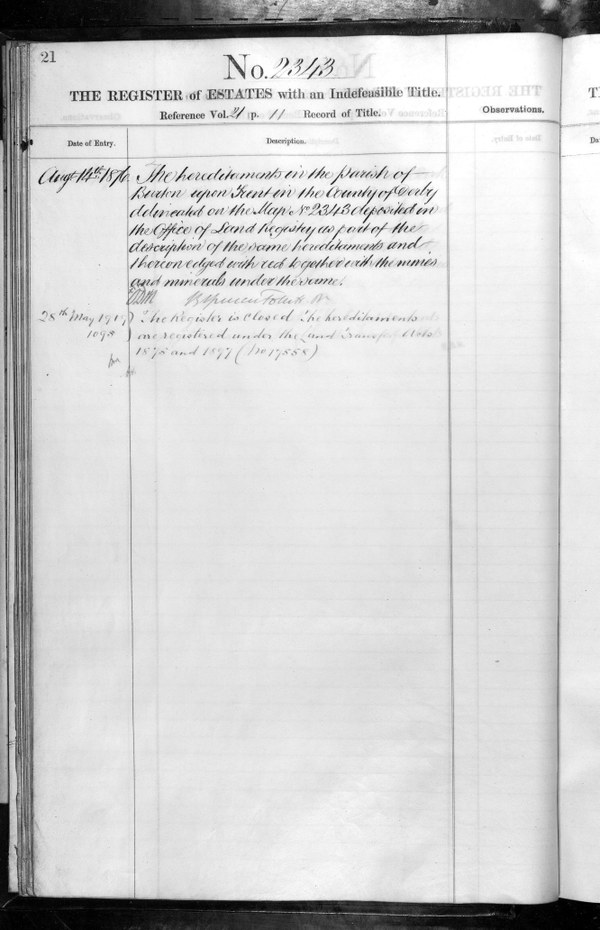 21
No. 2343
THE REGISTER of ESTATES with an Indefeasible Title.
Reference Vol. 21 p. 11 Record of Title.
Observations.
Date of Entry.
Description.
Augt 14th 1876
The hereditements in the parish of
Burton upon Trent in the County of Derby
delineated on the Map No 2343 deposited in
the Office of Land Registry as part of the
description of the same hereditaments and
thereon edged with red together with the mines
and minerals under the same.
28th May 1919
The Register is closed The hereditaments
1098
are registered under the Land Transfer Acts
1875 and 1897 (No 17858)